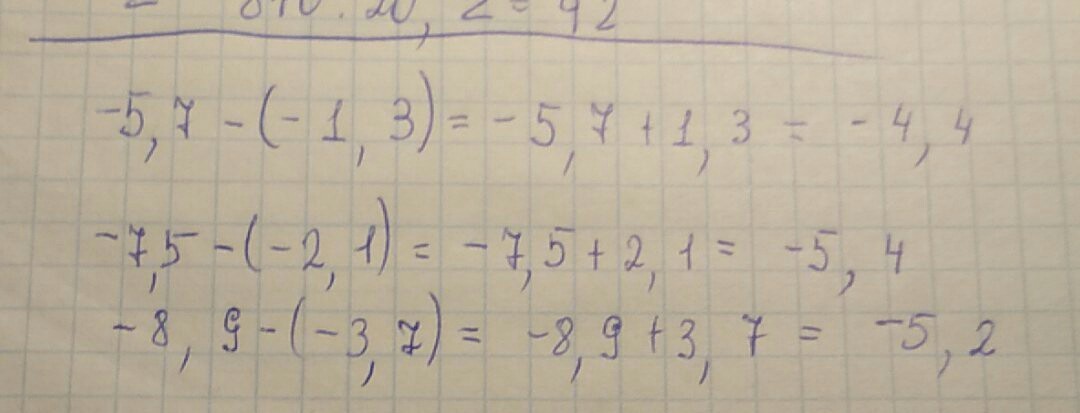 -5,7-(-1,3)=-5,7+1,3=-4,4
-7,5-(-2,1)=-7,5+2,1=-5,4
-8,9-(-3,7)=-8,9+3,7=-5,2